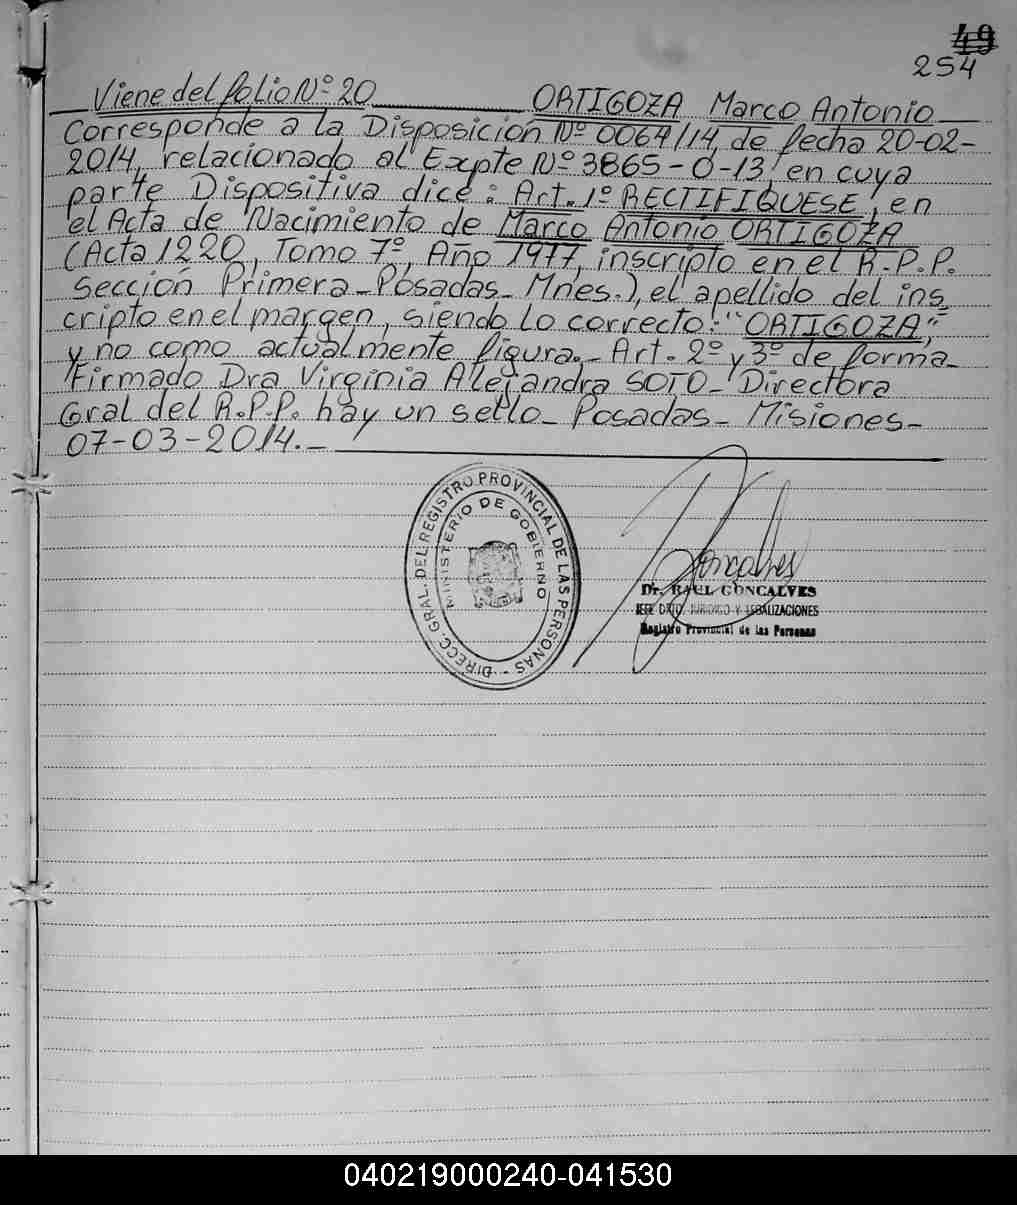 49
254
Viene del folio Nº 20 ORTIGOZA Marco Antonio
Corresponde a la Disposición Nº 0064/14, de fecha 20-02-
2014, relacionado al Expte Nº 3865-O-13, en cuya
parte Dispositiva dice: Art. 1º RECTIFIQUESE, en
el Acta de Nacimiento de Marco Antonio ORTIGOZA
(Acta 1220, Tomo 7º, Año 1977, inscripto en el R.P.P.
Sección Primera-Posadas-Mnes.), el apellido del ins
cripto en el margen, siendo lo correcto: "ORTIGOZA",
y no como actualmente figura.- Art. 2º y 3º de forma-
Firmado Dra Virginia Alejandra SOTO- Directora
Gral del R.P.P. hay un sello- Posadas- Misiones-
07-03-2014.-
DIRECC. GRAL. DEL REGISTRO PROVINCIAL DE LAS PERSONAS
MINISTERIO DE GOBIERNO
Goncalves
Dr. RAUL GONCALVES
JEFE DPTO. JURIDICO Y LEGALIZACIONES
Registro Provincial de las Personas
040219000240-041530